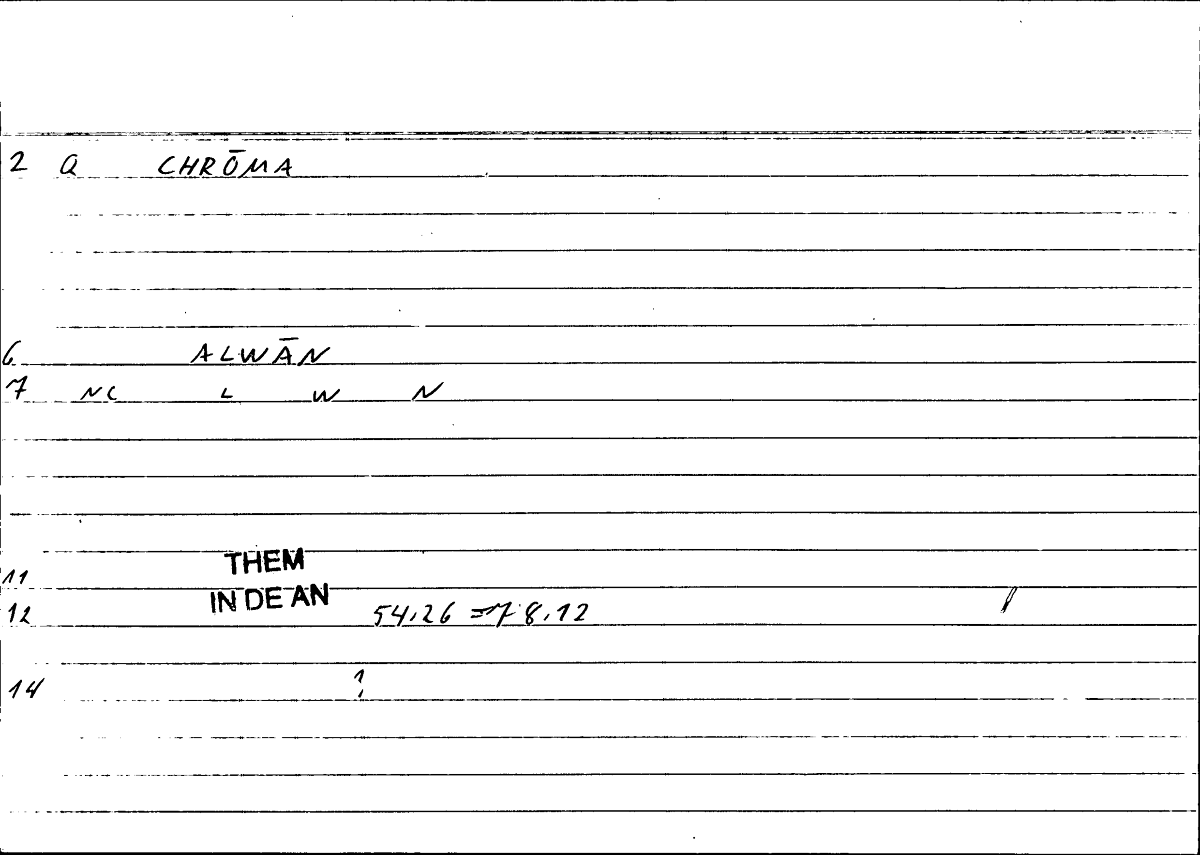 2 Q CHRŌMA
6 ALWĀN
7 NC L W N
THEM
11
IN DE AN
12 54,26 = 78,12
14 1